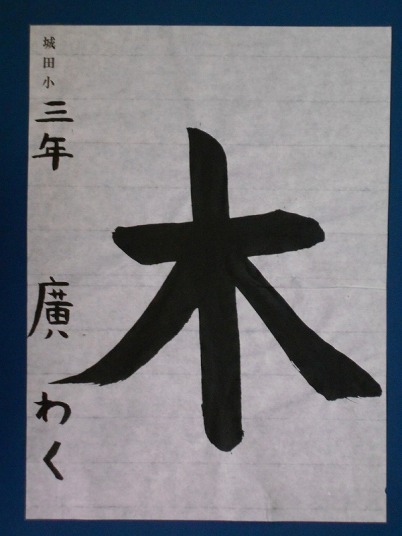 木
城田小 三年 廣 わく